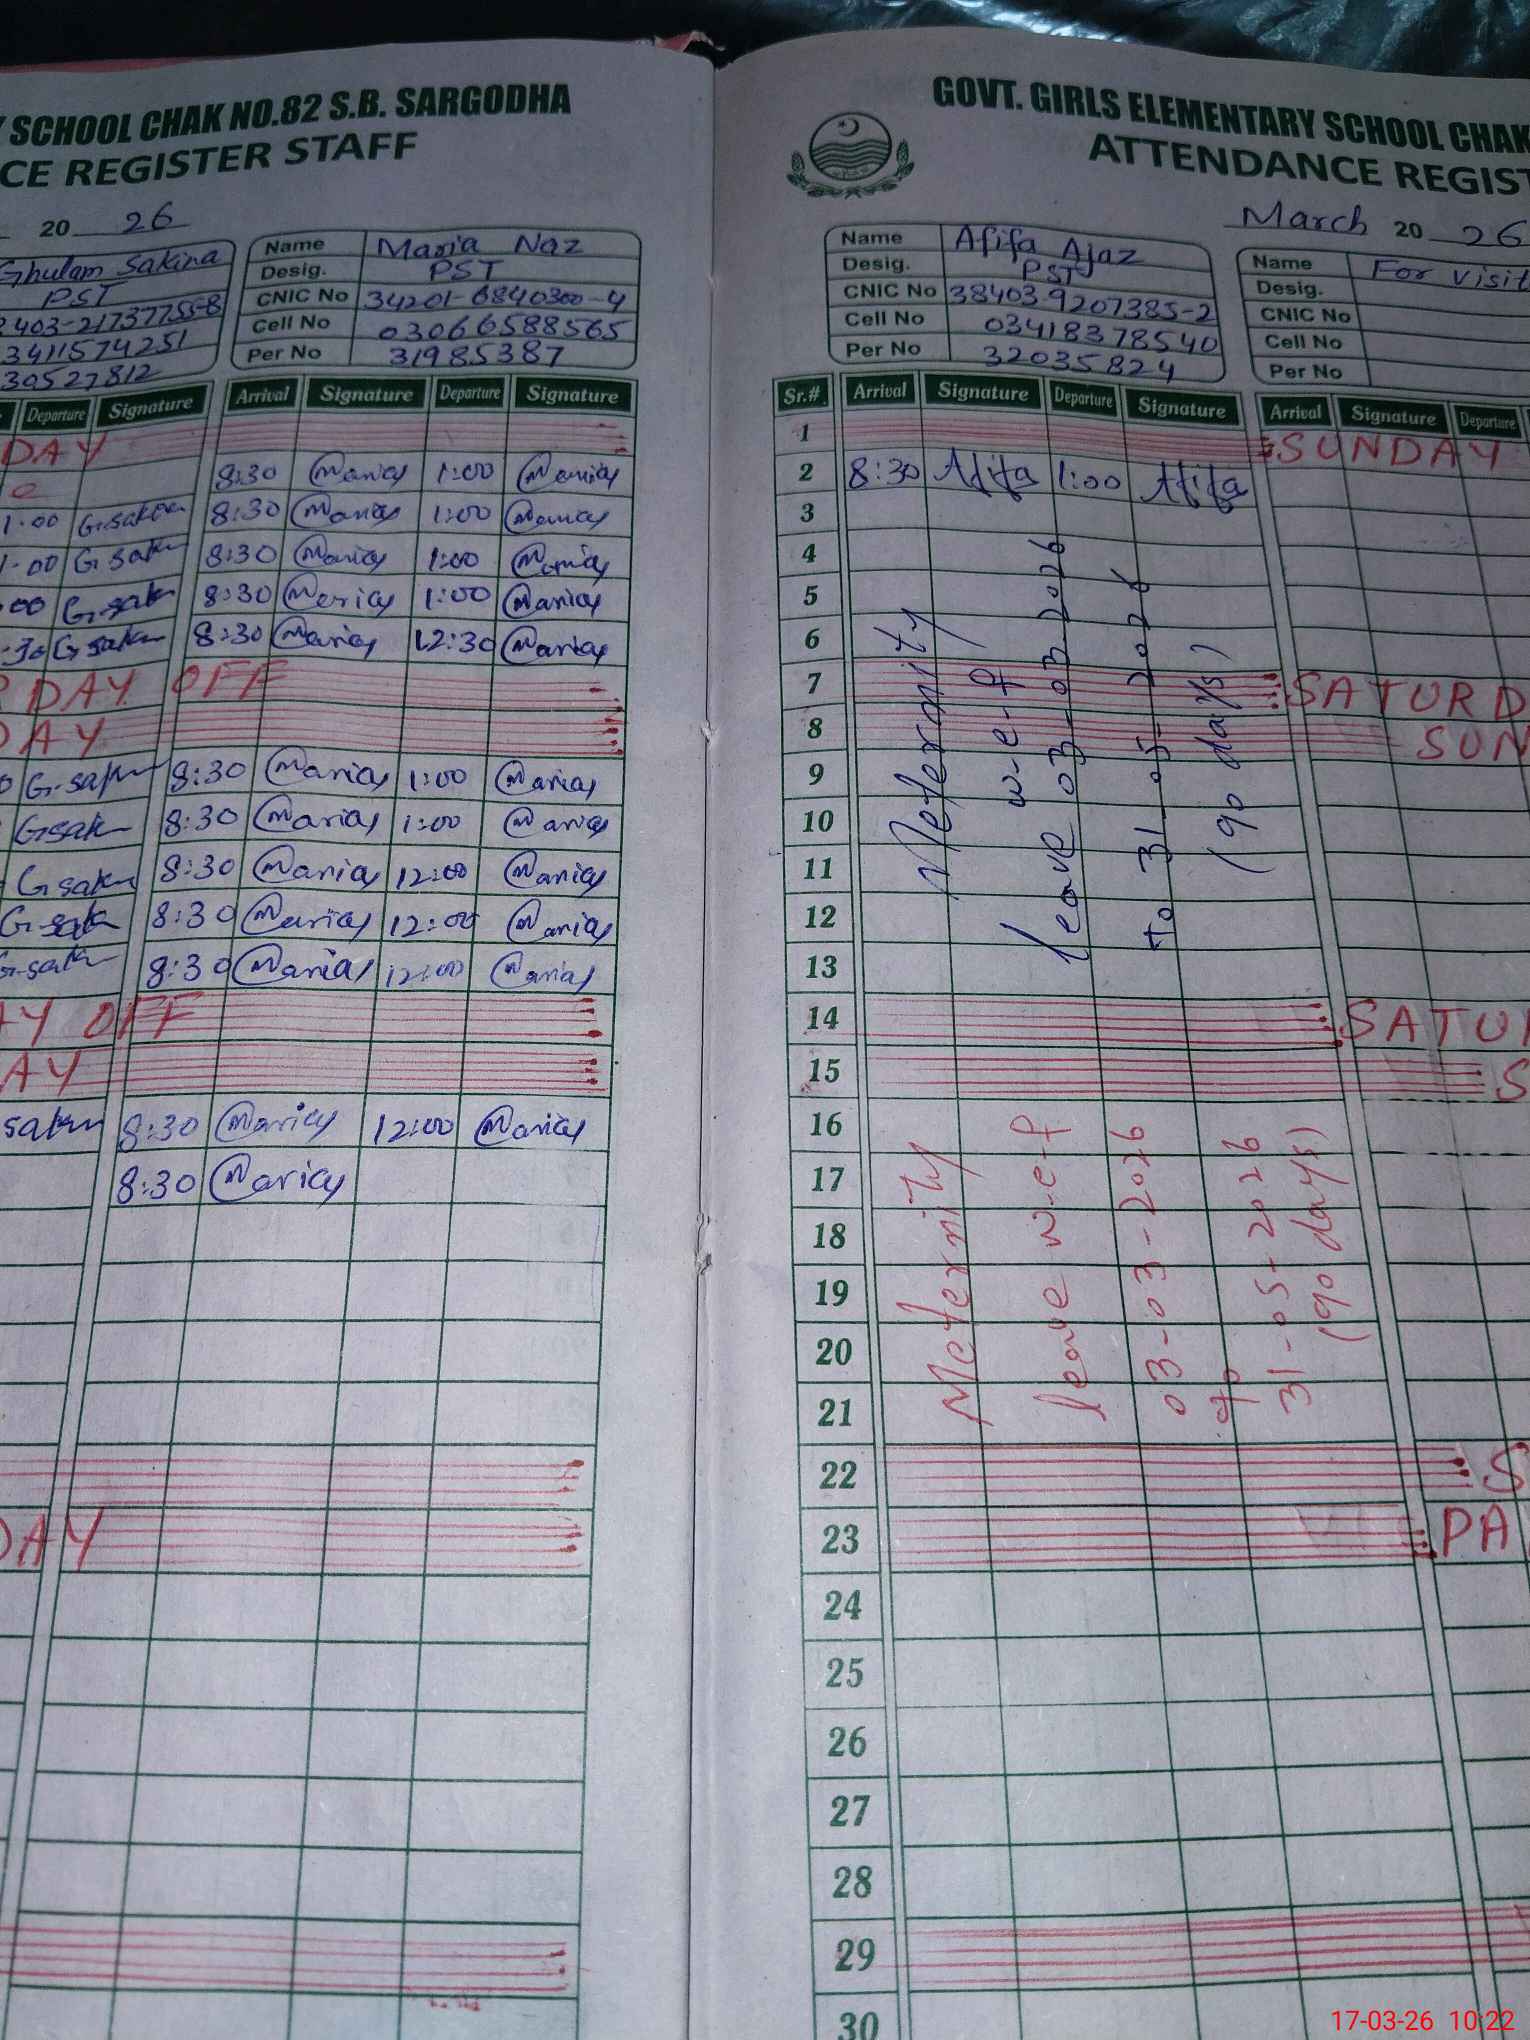 SCHOOL CHAK NO.82 S.B. SARGODHA
CE REGISTER STAFF
20 26
Ghulam Sakina
PST
403-2173775-8
3411574251
30527812
Name Maria Naz
Desig. PST
CNIC No 34201-6840300-4
Cell No 03066588565
Per No 31985387
Departure Signature Arrival Signature Departure Signature
DAY
8:30 Maria 1:00 Maria
1:00 G.sakina 8:30 Maria 1:00 Maria
1:00 G.sakin 8:30 Maria 1:00 Maria
:00 G.sakin 8:30 Maria 1:00 Maria
:30 G.sakin 8:30 Maria 12:30 Maria
DAY OFF
DAY
G.sakin 8:30 Maria 1:00 Maria
G.sakin 8:30 Maria 1:00 Maria
G.sakin 8:30 Maria 12:00 Maria
G.sakin 8:30 Maria 12:00 Maria
G.sakin 8:30 Maria 12:00 Maria
AY OFF
AY
sakin 8:30 Maria 12:00 Maria
8:30 Maria
DAY
GOVT. GIRLS ELEMENTARY SCHOOL CHAK
ATTENDANCE REGIST
March 20 26
Name Afifa Ajaz
Desig. PST
CNIC No 38403-9207385-2
Cell No 03418378540
Per No 32035824
Name For visit
Desig.
CNIC No
Cell No
Per No
Sr.# Arrival Signature Departure Signature Arrival Signature Departure
1 SUNDAY
2 8:30 Afifa 1:00 Afifa
3
4
5
6
7 SATURD
8 SUN
9
10
11
12
13
Meternity
leave w-e-f
03-03-2026
to 31-05-2026
(90 days)
14 SATUR
15 S
16
17
18
19
20
21
Meternity
leave w-e-f
03-03-2026
to
31-05-2026
(90 days)
22 S
23 PA
24
25
26
27
28
29
30
17-03-26 10:22